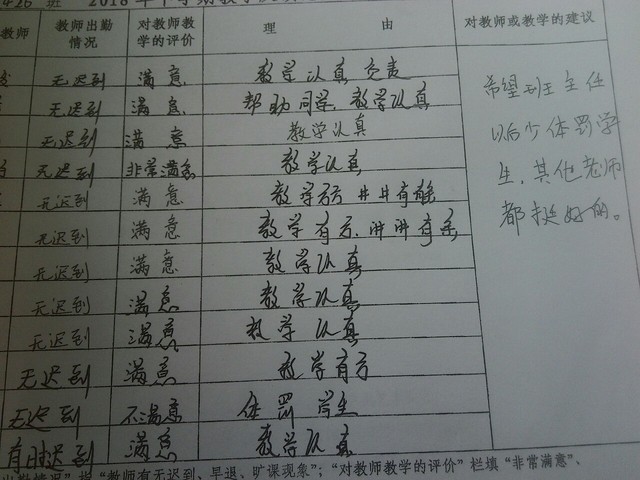 426 班 2018年下学期教学
教师 教师出勤情况 对教师教学的评价 理 由 对教师或教学的建议
无迟到 满意 教学认真 负责
无迟到 满意 帮助同学 教学认真
无迟到 满意 教学认真
无迟到 非常满意 教学认真
无迟到 满意 教学有方 井井有条
无迟到 满意 教学有方.井井有条
无迟到 满意 教学认真
无迟到 满意 教学认真
无迟到 满意 教学认真
无迟到 满意 教学有方
无迟到 不满意 体罚 学生
有时迟到 满意 教学认真
希望班主任
以后少体罚学
生.其他老师
都挺好的。
出勤情况”指“教师有无迟到、早退、旷课现象”；“对教师教学的评价”栏填“非常满意”、